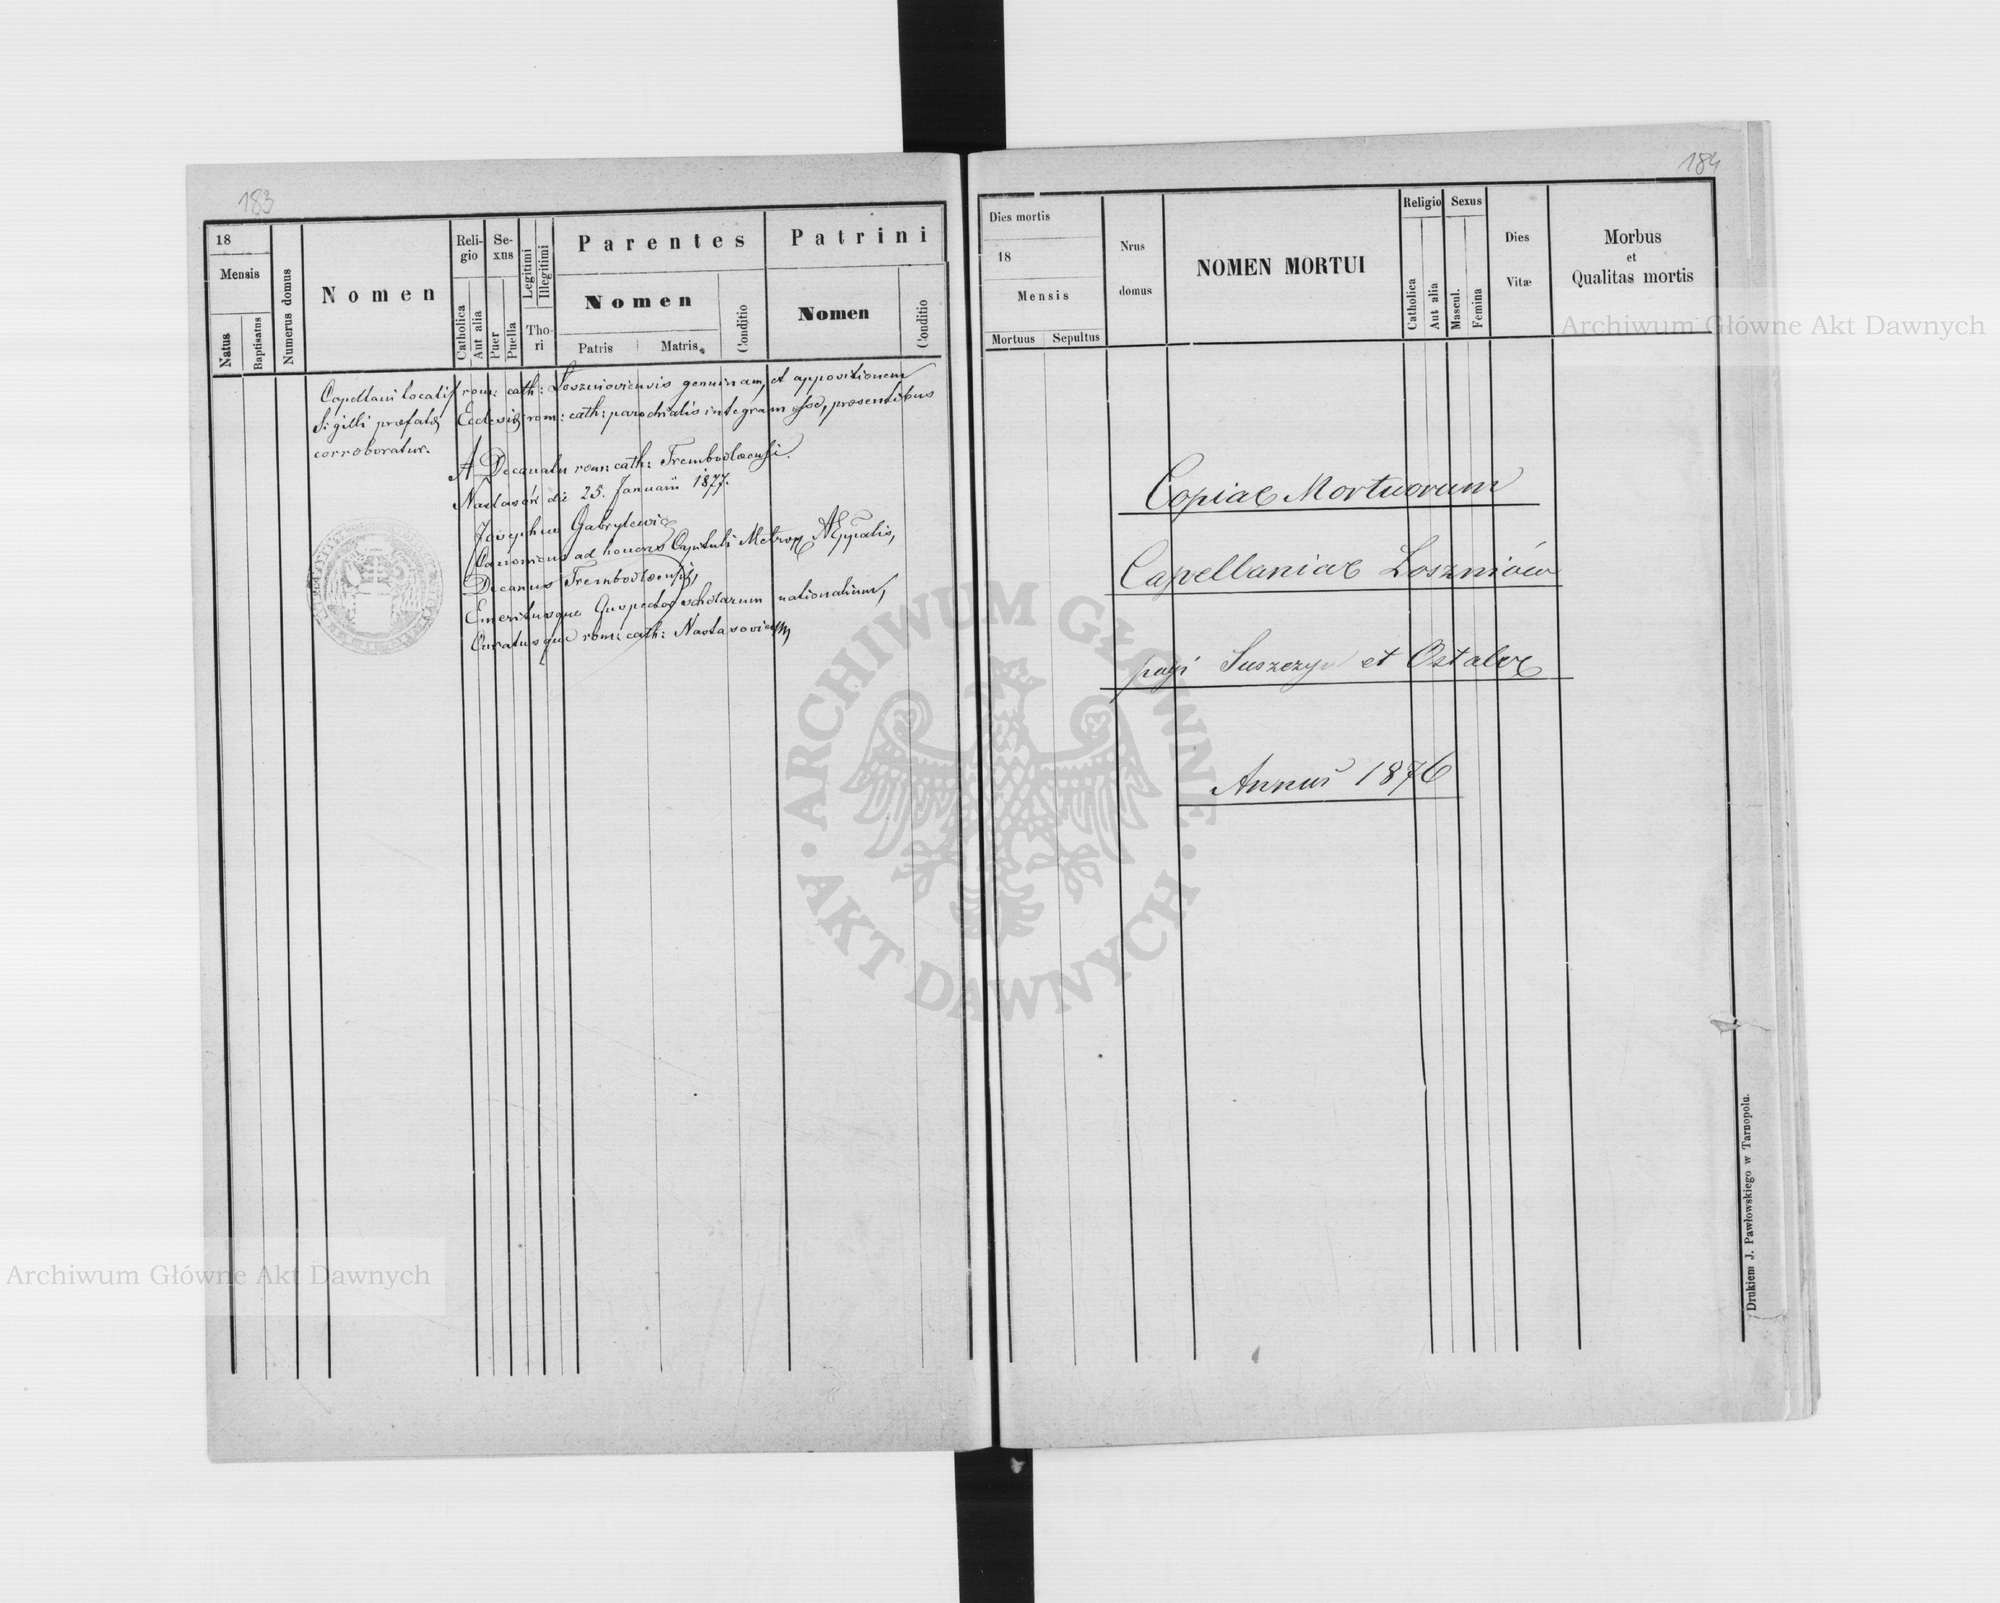 183
18
Mensis
Natus
Baptisatus
Numerus domus
Nomen
Reli-
gio
Catholica
Aut alia
Se-
xus
Puer
Puella
Legitimi
Illegitimi
Tho-
ri
Parentes
Nomen
Patris
Matris
Conditio
Patrini
Nomen
Conditio
Capellani localis rom: cath: Losznioviensis genuinam, et appositionem
Sigilli præfatæ Ecclesiæ rom: cath: parochialis integram esse, præsentibus
corroboratur.
A Decanatu rom: cath: Trembowlaensi.
Nastasów die 25. Januarii 1877.
Josephus Gabrylewicz
Canonicus ad honores Capituli Metrop
Decanus Trembowlaensis,
Emeritusque scholarum nationalium,
Curatusque rom: cath:
184
Dies mortis
18
Mensis
Mortuus
Sepultus
Nrus
domus
NOMEN MORTUI
Religio
Catholica
Aut alia
Sexus
Mascul.
Femina
Dies
Vitæ
Morbus
et
Qualitas mortis
Copiae Mortuorum
Capellaniae Loszniów
pagi Suszczyn et Ostalce
Annus 1876
Drukiem J. Pawłowskiego w Tarnopolu.
Archiwum Główne Akt Dawnych
Archiwum Główne Akt Dawnych
ARCHIWUM GŁÓWNE
AKT DAWNYCH